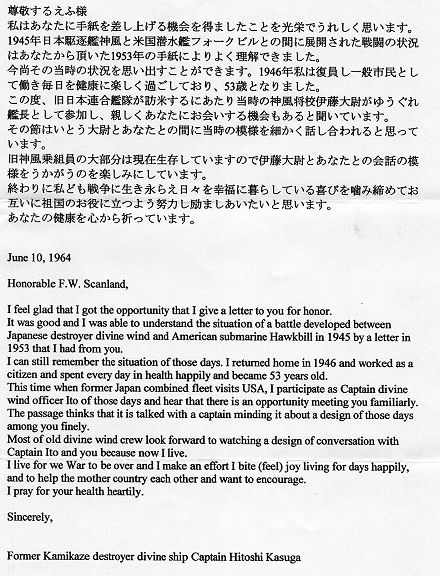 尊敬するえふ様
私はあなたに手紙を差し上げる機会を得ましたことを光栄でうれしく思います。
1945年日本駆逐艦神風と米国潜水艦フォークビルとの間に展開された戦闘の状況
はあなたから頂いた1953年の手紙によりよく理解できました。
今尚その当時の状況を思い出すことができます。1946年私は復員し一般市民とし
て働き毎日を健康に楽しく過ごしており、53歳となりました。
この度、旧日本連合艦隊が訪米するにあたり当時の神風将校伊藤大尉がゆうぐれ
艦長として参加し、親しくあなたにお会いする機会もあると聞いています。
その節はいとう大尉とあなたとの間に当時の模様を細かく話し合われると思って
います。
旧神風乗組員の大部分は現在生存していますので伊藤大尉とあなたとの会話の模
様をうかがうのを楽しみにしています。
終わりに私ども戦争に生き永らえ日々を幸福に暮らしている喜びを噛み締めてお
互いに祖国のお役に立つよう努力し励ましあいたいと思います。
あなたの健康を心から祈っています。
June 10, 1964
Honorable F.W. Scanland,
I feel glad that I got the opportunity that I give a letter to you for honor.
It was good and I was able to understand the situation of a battle developed between
Japanese destroyer divine wind and American submarine Hawkbill in 1945 by a letter in
1953 that I had from you.
I can still remember the situation of those days. I returned home in 1946 and worked as a
citizen and spent every day in health happily and became 53 years old.
This time when former Japan combined fleet visits USA, I participate as Captain divine
wind officer Ito of those days and hear that there is an opportunity meeting you familiarly.
The passage thinks that it is talked with a captain minding it about a design of those days
among you finely.
Most of old divine wind crew look forward to watching a design of conversation with
Captain Ito and you because now I live.
I live for we War to be over and I make an effort I bite (feel) joy living for days happily,
and to help the mother country each other and want to encourage.
I pray for your health heartily.
Sincerely,
Former Kamikaze destroyer divine ship Captain Hitoshi Kasuga